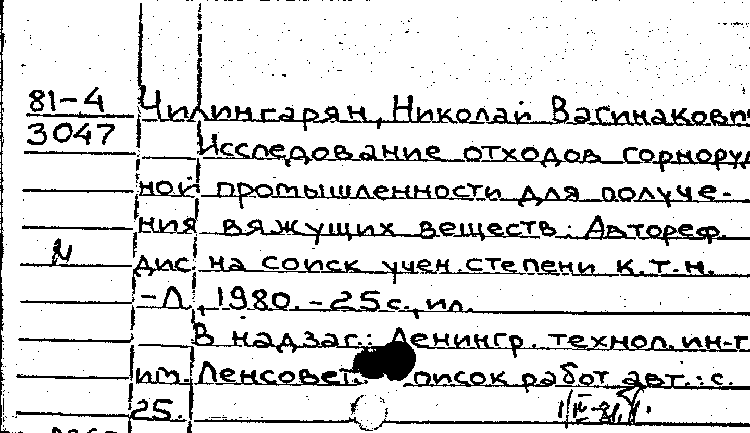 81-4 Чилингарян, Николай Васинакович
3047 Исследование отходов горноруд
ной промышленности для получе-
ния вяжущих веществ: Автореф.
дис. на соиск учен. степени к.т.н.
-Л, 1980. - 25с., ил.
В надзаг.: Ленингр. технол. ин-т
им. Ленсовета. Список работ авт.: с.
25.